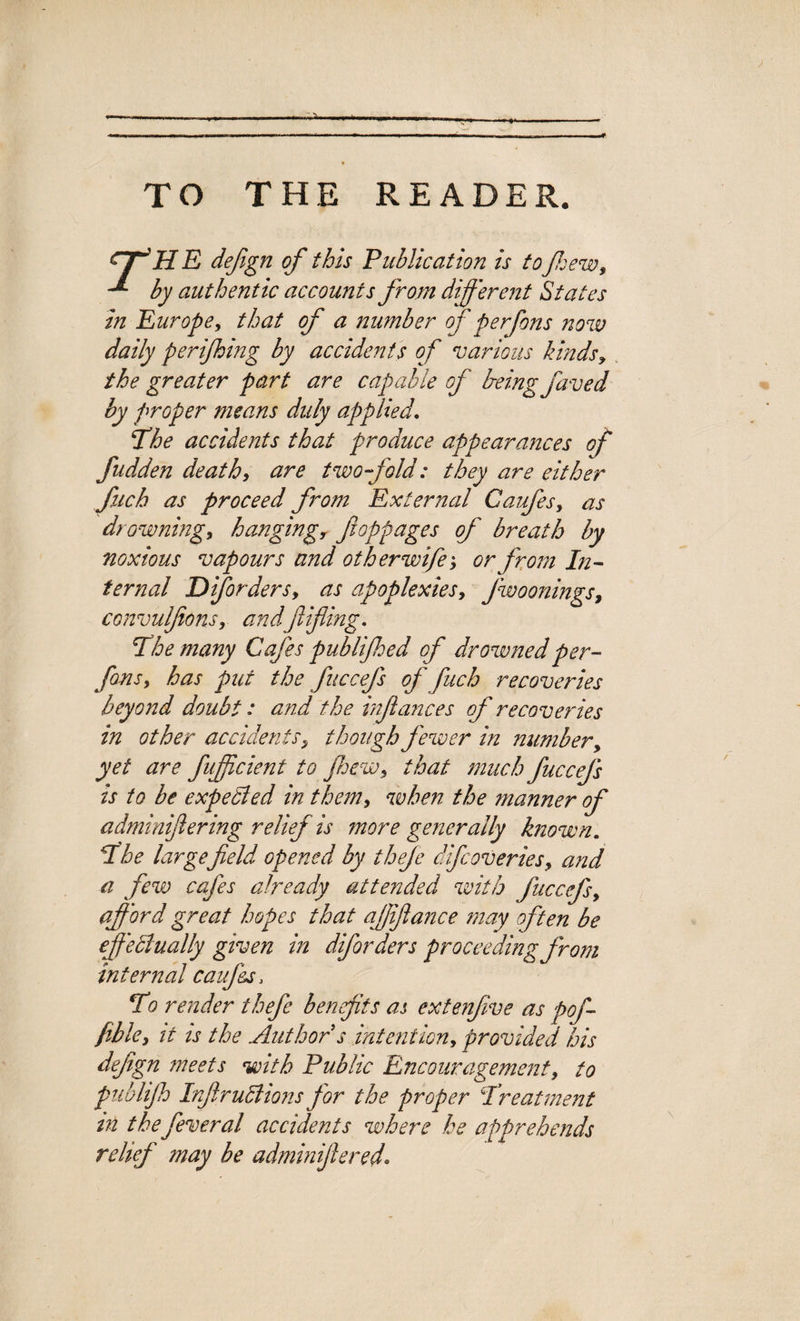 TO THE READER.
THE deſign of this Publication is to ſhew,
by authentic accounts from different States
in Europe, that of a number of perſons now
daily periſhing by accidents of various kinds,
the greater part are capable of being ſaved
by proper means duly applied.
The accidents that produce appearances of
ſudden death, are two-fold: they are either
ſuch as proceed from External Cauſes, as
drowning, hanging, ſtoppages of breath by
noxious vapours and otherwiſe; or from In-
ternal Diſorders, as apoplexies, ſwoonings,
convulſions, and ſtifling.
The many Caſes publiſhed of drowned per-
ſons, has put the ſucceſs of ſuch recoveries
beyond doubt: and the inſtances of recoveries
in other accidents, though fewer in number,
yet are ſufficient to ſhew, that much ſucceſs
is to be expected in them, when the manner of
adminiſtering relief is more generally known.
The large field opened by theſe diſcoveries, and
a few caſes already attended with ſucceſs,
afford great hopes that aſſiſtance may often be
effectually given in diſorders proceeding from
internal cauſes.
To render theſe benefits as extenſive as poſ-
ſible, it is the Author's intention, provided his
deſign meets with Public Encouragement, to
publiſh Inſtructions for the proper Treatment
in the ſeveral accidents where he apprehends
relief may be adminiſtered.